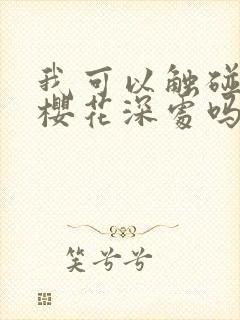 我可以触碰
樱花深处吗
笑兮兮